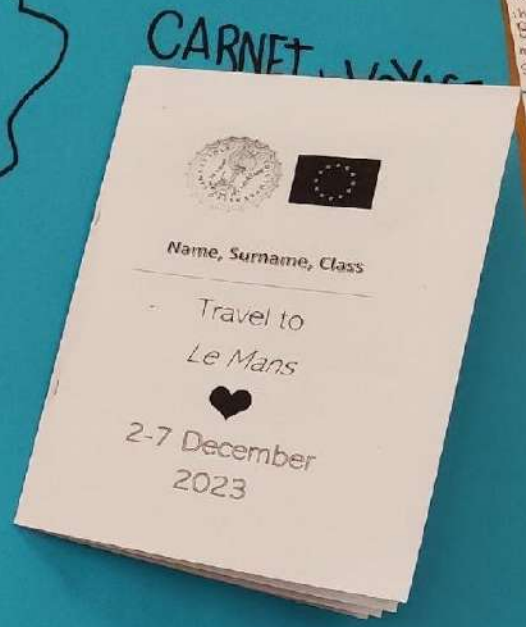 CARNET
Name, Surname, Class
Travel to
Le Mans
2-7 December
2023